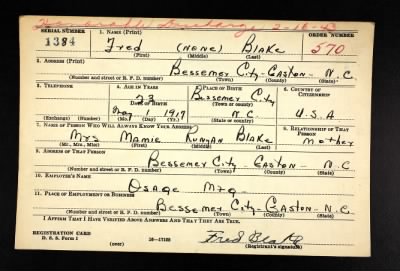 Honorable Discharge 2-18-43
SERIAL NUMBER 1. NAME (Print) ORDER NUMBER
1384 Fred (NONE) Blake 570
(First) (Middle) (Last)
2. ADDRESS (Print)
Bessemer City - Gaston - N. C.
(Number and street or R. F. D. number) (Town) (County) (State)
3. TELEPHONE 4. AGE IN YEARS 5. PLACE OF BIRTH 6. COUNTRY OF CITIZENSHIP
23 Bessemer City
DATE OF BIRTH (Town or county)
1917 N. C. U. S. A
(Exchange) (Number) (Mo.) (Day) (Yr.) (State or country)
7. NAME OF PERSON WHO WILL ALWAYS KNOW YOUR ADDRESS 8. RELATIONSHIP OF THAT PERSON
Mrs Mamie Blake Mother
(Mr., Mrs., Miss) (First) (Middle) (Last)
9. ADDRESS OF THAT PERSON
Bessemer City Gaston - N. C
(Number and street or R. F. D. number) (Town) (County) (State)
10. EMPLOYER'S NAME
Osage Mfg.
11. PLACE OF EMPLOYMENT OR BUSINESS
Bessemer City - Gaston - N. C.
(Number and street or R. F. D. number) (Town) (County) (State)
I AFFIRM THAT I HAVE VERIFIED ABOVE ANSWERS AND THAT THEY ARE TRUE.
REGISTRATION CARD
D. S. S. Form 1 (over) Fred Blake
(Registrant's signature)